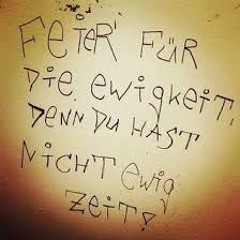 FeieR FÜR
Die ewigkeit,
DENN DU HAST
NicHT ewig
Zeit!